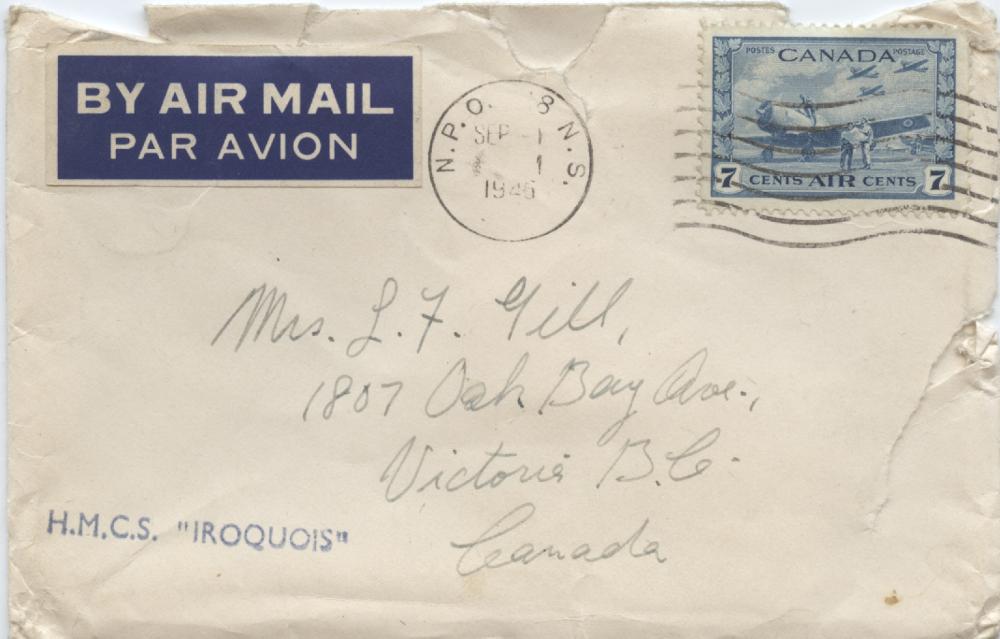 BY AIR MAIL
PAR AVION
N.P.O. 8 N.S.
SEP -1
1
1945
POSTES CANADA POSTAGE
7 CENTS AIR CENTS 7
Mrs. L. F. Gill,
1807 Oak Bay Ave.,
Victoria B.C.
Canada
H.M.C.S. "IROQUOIS"